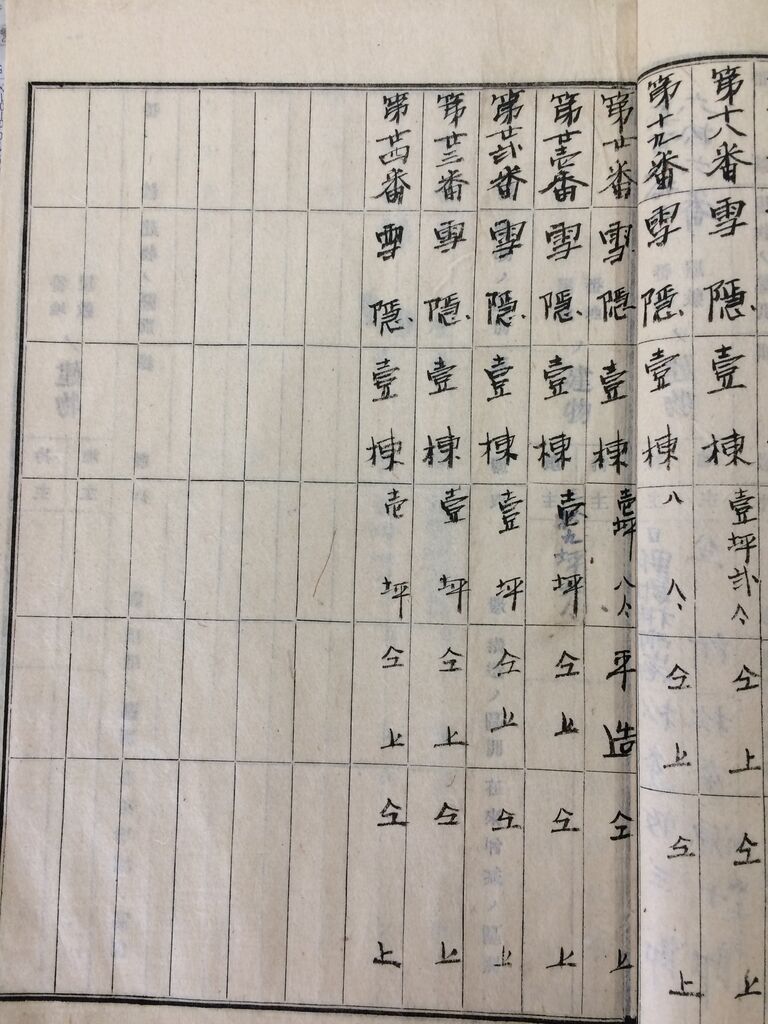 第十八番 雪隠 壹棟 壹坪弐合 仝上 仝上
第十九番 雪隠 壹棟 八合 仝上 仝上
第廿番 雪隠 壹棟 壱坪八合 平造 仝上
第廿壱番 雪隠 壹棟 壱坪 仝上 仝上
第廿弐番 雪隠 壹棟 壹坪 仝上 仝上
第廿三番 雪隠 壹棟 壹坪 仝上 仝上
第廿四番 雪隠 壹棟 壱坪 仝上 仝上